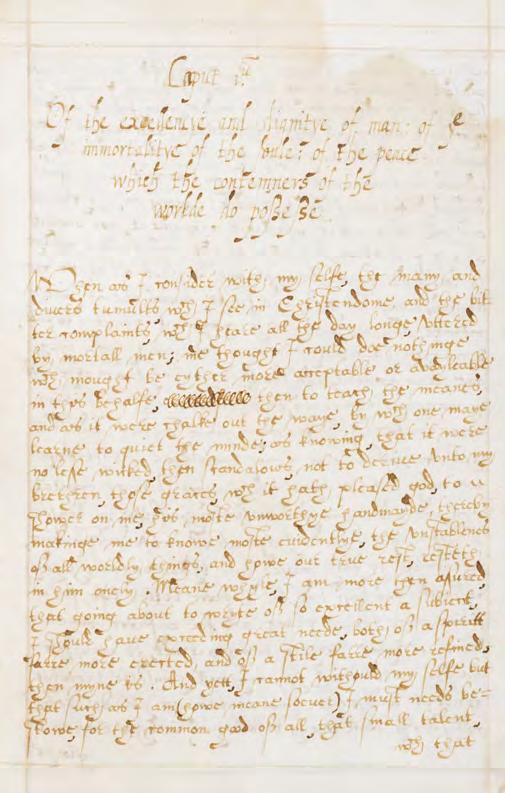 Caput 1.
Of the excellencie and dignitye of man: of ye
immortalitye of the soule: of the peace
which the contemners of the
worlde do possesse.
When as I consider with my selfe, the many and
divers tumults wch I see in Christendome and the bit
ter complaints, wch I heare all the day longe, uttered
by mortall men; me thought I could doe nothinge
wch mought be eyther more acceptable or avayleable
in thys behalfe, then to teach the meanes,
and as it were chalke out the waye, by wch one maye
learne to quiet the minde: as knowing, that it were
no lesse wicked then scandalows, not to derive unto my
brethren, those graces, wch it hath pleased god to
shower on me hys moste unworthye handmayde, thereby
makinge me to knowe moste evidentlye, the unstablenes
of all worldly things, and howe our true rest, resteth
in him onely. Meane whyle, I am more then asured,
that going about to wryte of so excellent a subiect,
I should have exceeding great neede, both of a spiritt
farre more erected, and of a stile farre more refined,
then myne is. And yett, I cannot withould my selfe but
that such as I am (howe meane soever) I must needs be-
stowe, for the common good of all, that small talent,
wch that